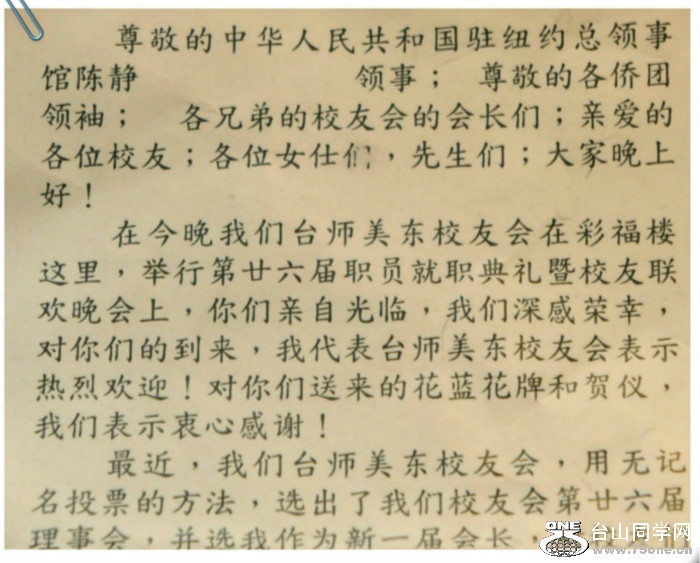 尊敬的中华人民共和国驻纽约总领事
馆陈静 领事； 尊敬的各侨团
领袖； 各兄弟的校友会的会长们；亲爱的
各位校友；各位女仕们，先生们；大家晚上
好！
在今晚我们台师美东校友会在彩福楼
这里，举行第廿六届职员就职典礼暨校友联
欢晚会上，你们亲自光临，我们深感荣幸，
对你们的到来，我代表台师美东校友会表示
热烈欢迎！对你们送来的花蓝花牌和贺仪，
我们表示衷心感谢！
最近，我们台师美东校友会，用无记
名投票的方法，选出了我们校友会第廿六届
理事会，并选我作为新一届会长，
ONE
台山同学网
www.75one.cn